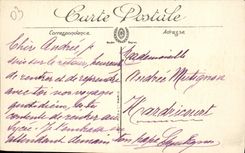 03
Carte Postale
Correspondance
Adresse
Chère Andrée, je
suis sur le retour, heureux
de rentrer et de reprendre
avec toi nos voyages
quotidiens. Es-tu
contente de rentrer au
lycée? Je t'embrasse en
attendant demain ton papa
Mademoiselle
Andrée Matignon
Hardricourt